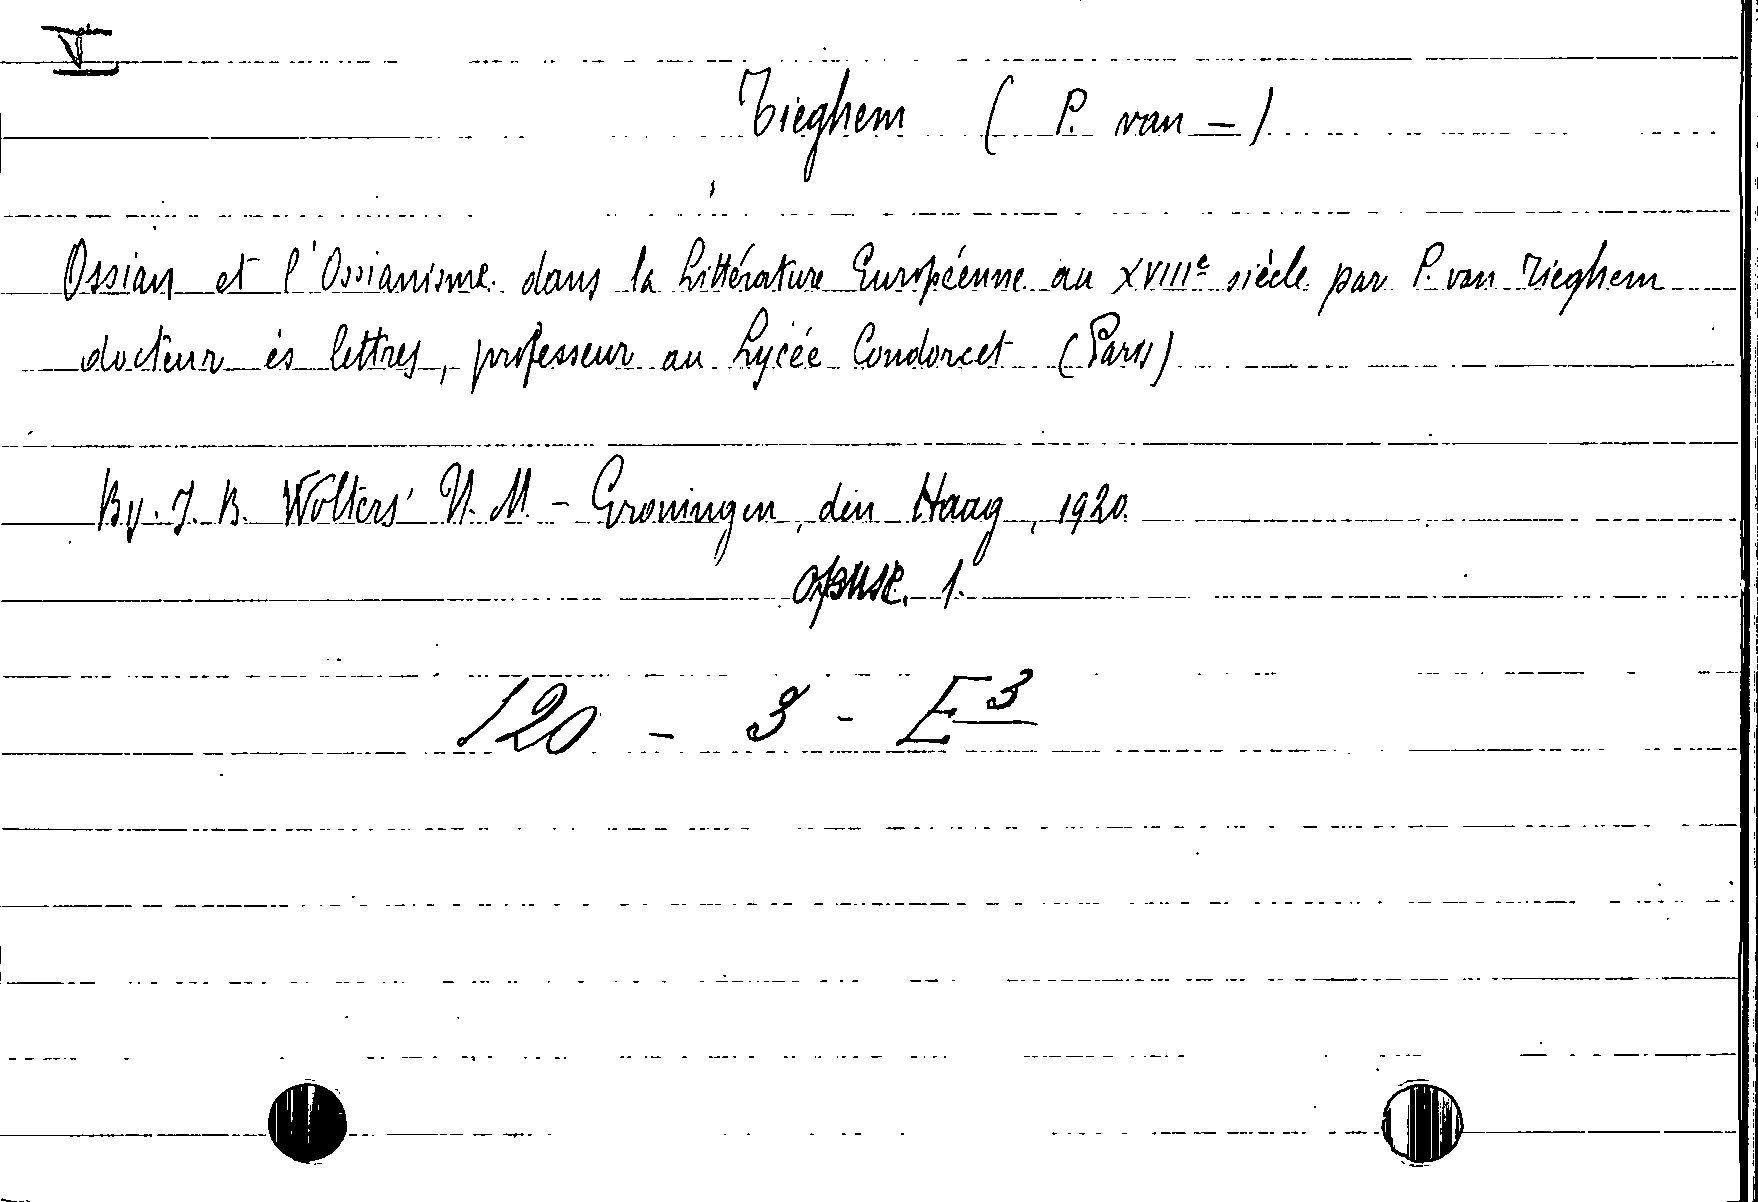 V
Tieghem ( P. van – )
Ossian et l'Ossianisme dans la Littérature Européenne au XVIIIe siècle par P. van Tieghem
docteur ès lettres, professeur au Lycée Condorcet (Paris)
By. J. B. Wolters' U. M – Groningen, den Haag, 1920.
opusc. 1.
120 – 3 - E3